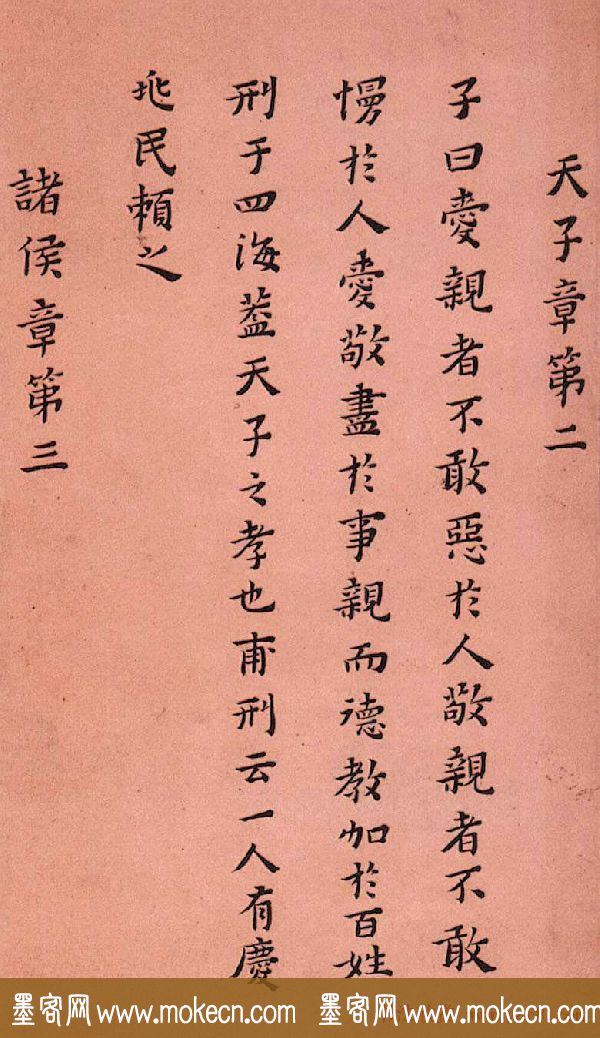 天子章第二
子曰愛親者不敢惡於人敬親者不敢
慢於人愛敬盡於事親而德教加於百姓
刑于四海葢天子之孝也甫刑云一人有慶
兆民頼之
諸侯章第三
墨客网 www.mokecn.com 墨客网 www.mokecn.com